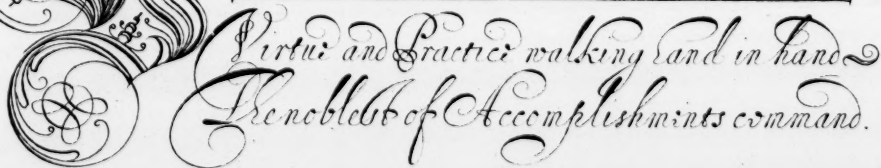 Virtue and Practice walking hand in hand
The noblest of Accomplishments command.